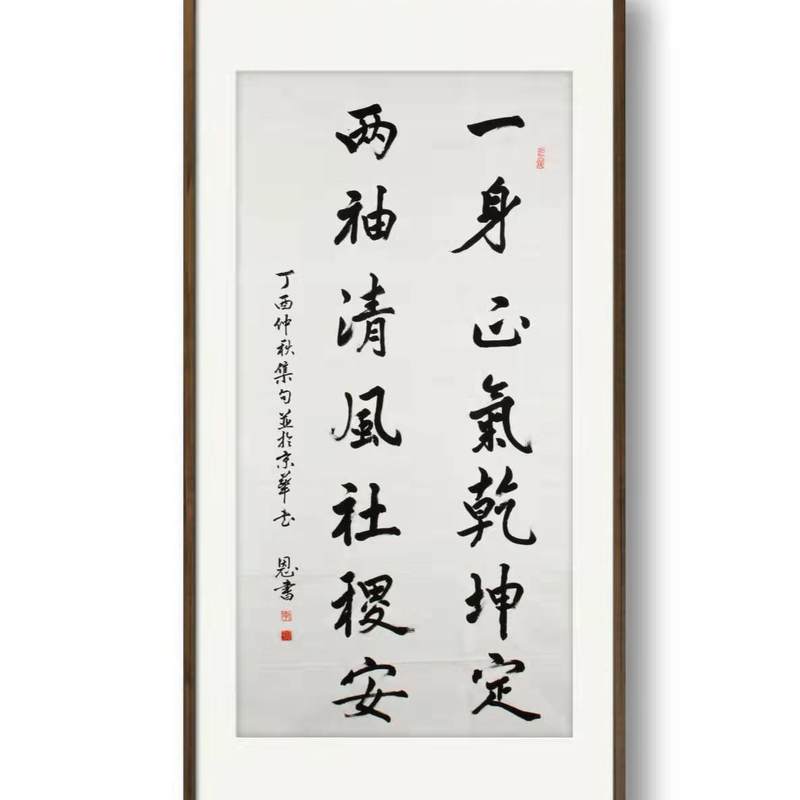 一身正氣乾坤定
两袖清風社稷安
丁酉仲秋集句並於京華书 恩書